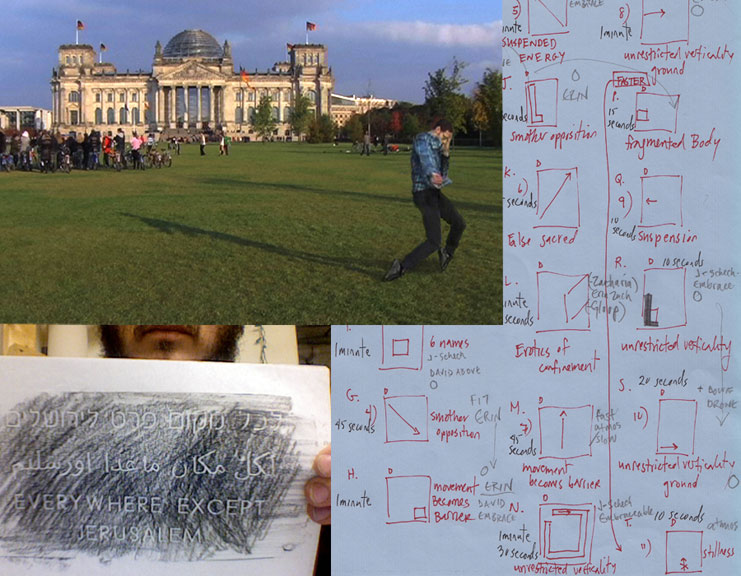 5)
EMBRACE
1 minute
SUSPENDED
ENERGY
J.
seconds
ERIN
smother opposition
K.
6)
seconds
False sacred
L.
minute
seconds
Erotics of
confinement
8)
1 minute
unrestricted verticality
ground
FASTER
P.
15
seconds
fragmented Body
Q.
9)
10
seconds
Suspension
R.
10 seconds
J-Schech-
Embrace
unrestricted verticality
S.
20 seconds
10)
unrestricted verticality
ground
T.
10 seconds
11)
stillness
1 minute
6 names
J-Schech
DAVID ABOVE
G.
4)
45 seconds
smother
opposition
FIT
ERIN
H.
1 minute
movement
Becomes
Barrier
ERIN
DAVID
EMBRACE
M.
7)
45
seconds
Fast
atmos
slow
movement
becomes barrier
N.
1 minute
30 seconds
J-Schech
Embraceable
unrestricted verticality
לכל מקום פרט לירושלים
لكل مكان ماعدا اورشليم
EVERYWHERE EXCEPT
JERUSALEM